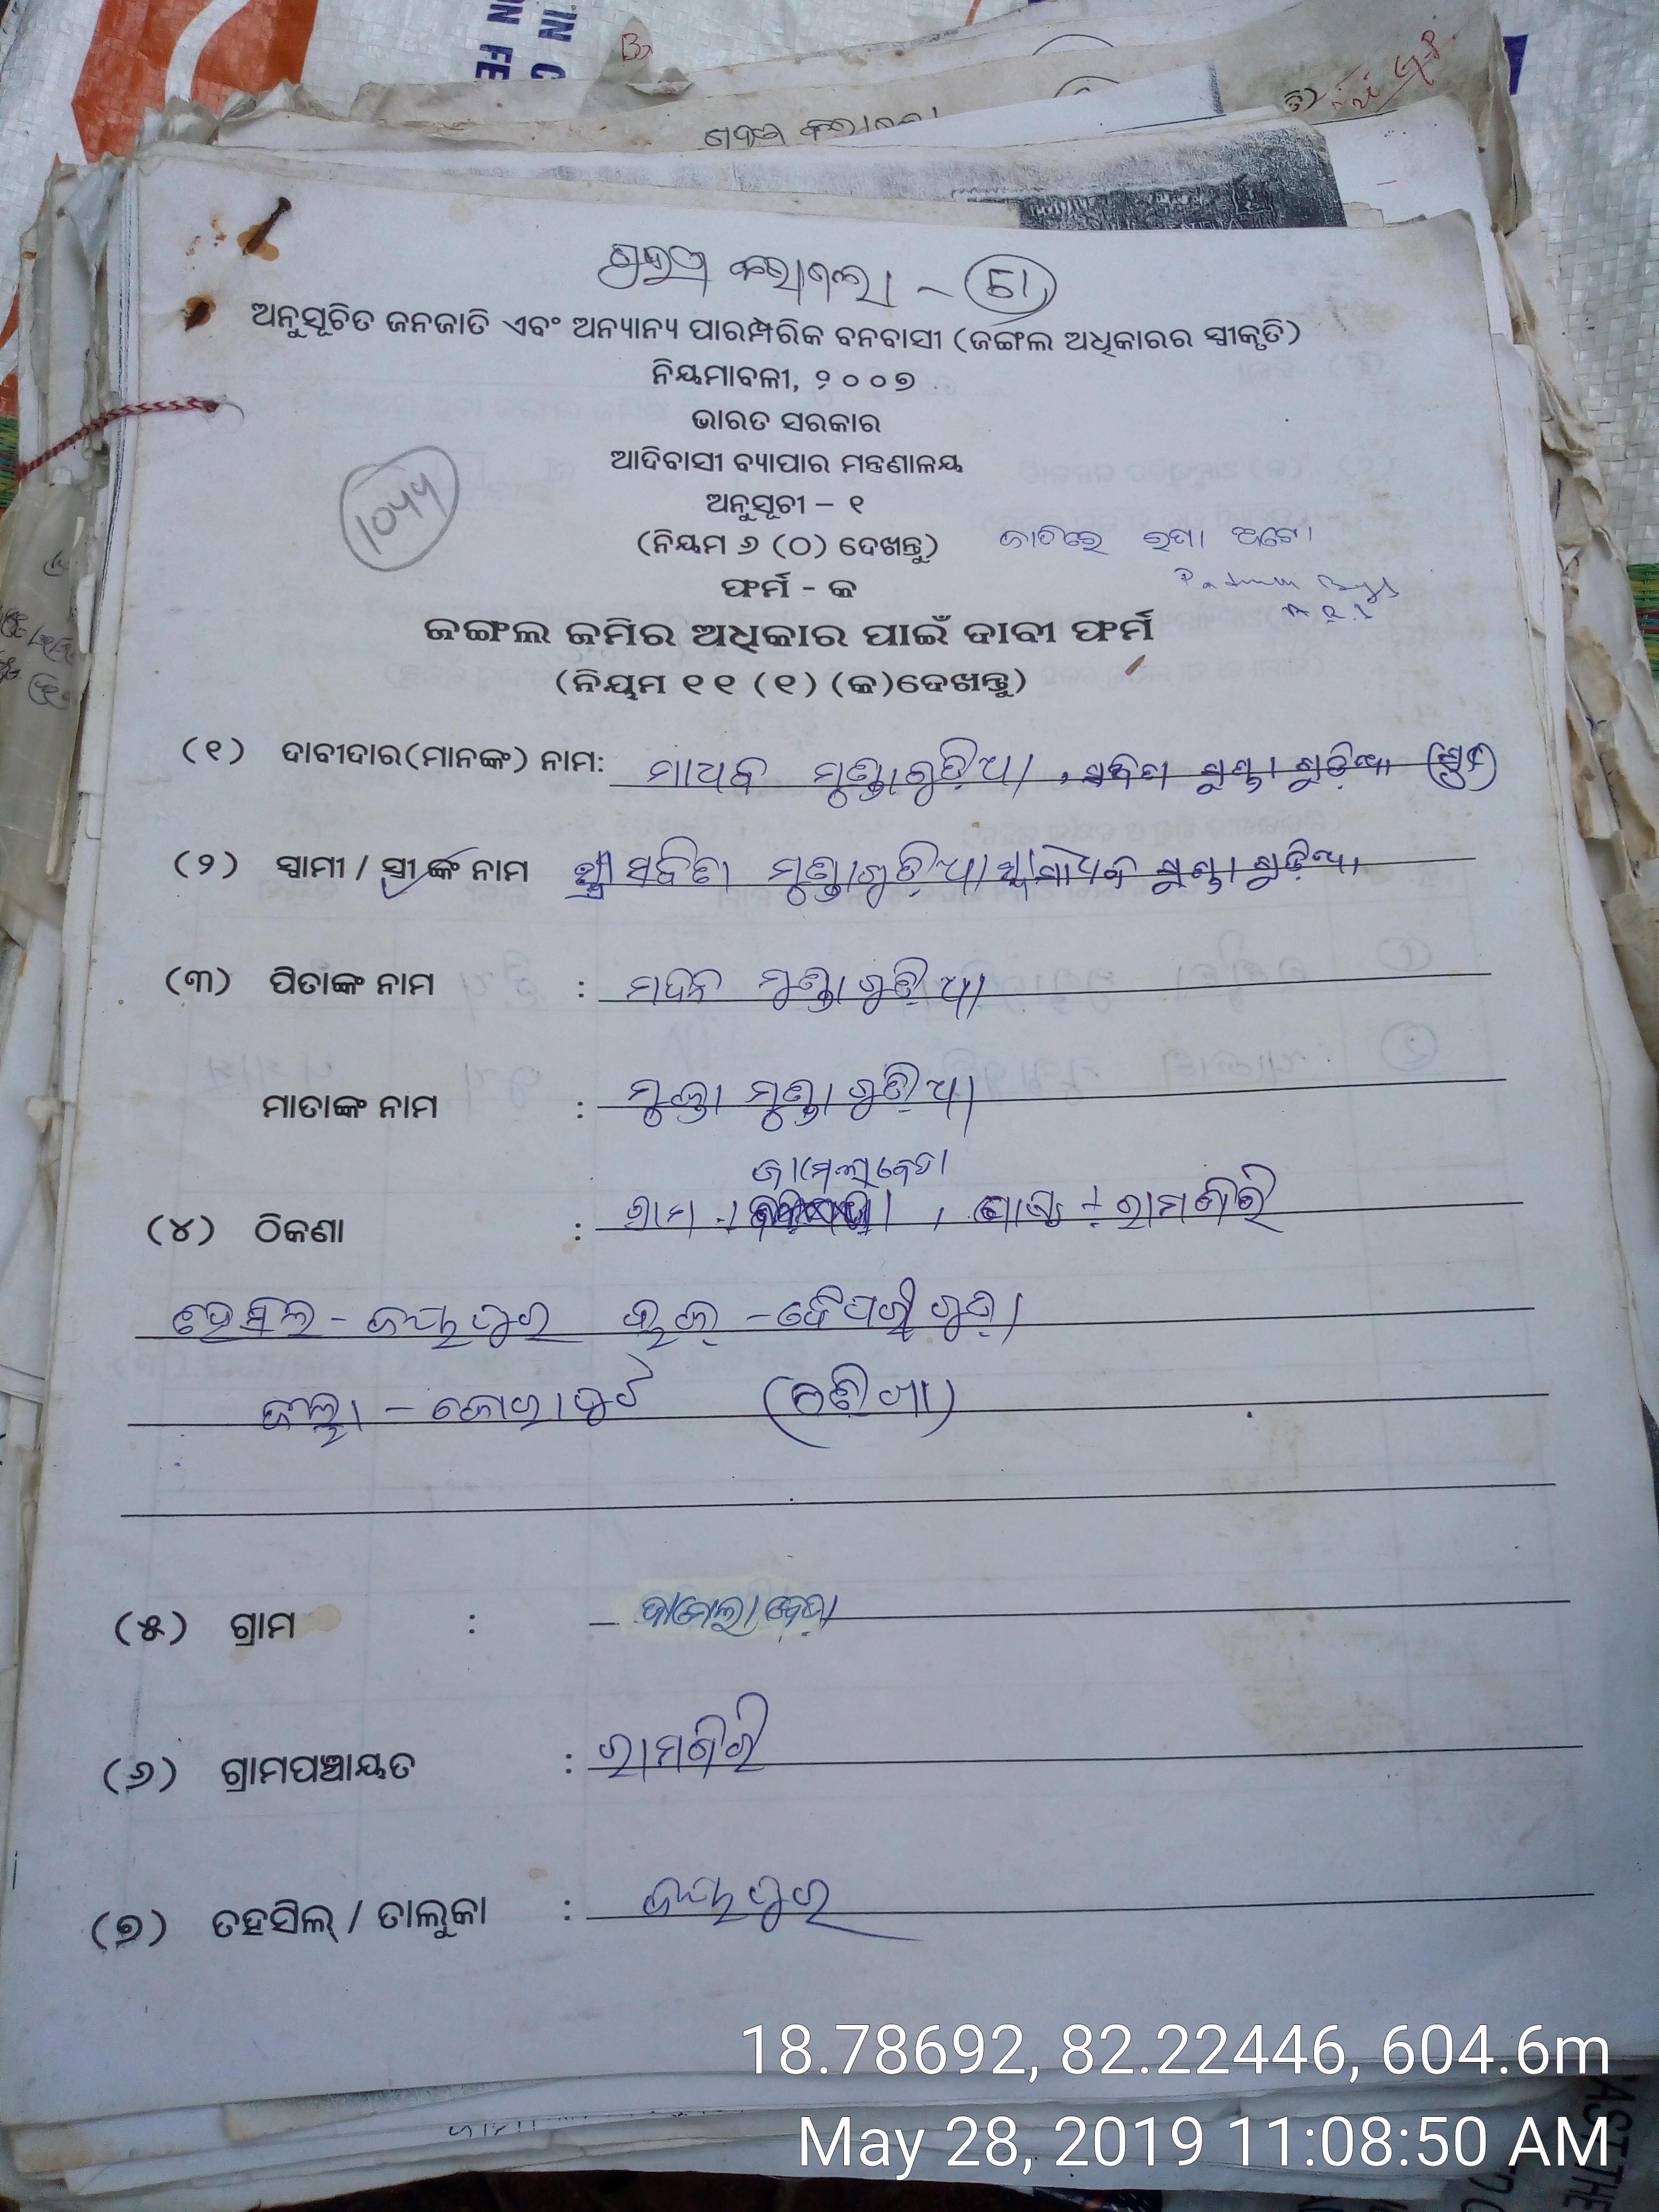 ଗୃହୀତ କରାଗଲା - 51
ଅନୁସୂଚିତ ଜନଜାତି ଏବଂ ଅନ୍ୟାନ୍ୟ ପାରମ୍ପରିକ ବନବାସୀ (ଜଙ୍ଗଲ ଅଧିକାରର ସ୍ୱୀକୃତି)
ନିୟମାବଳୀ, ୨୦୦୭
ଭାରତ ସରକାର
ଆଦିବାସୀ ବ୍ୟାପାର ମନ୍ତ୍ରଣାଳୟ
ଅନୁସୂଚୀ – ୧
(ନିୟମ ୬ (ଠ) ଦେଖନ୍ତୁ) ଜାତିରେ ରଣା ଅଟେ।
ଫର୍ମ - କ
ଜଙ୍ଗଲ ଜମିର ଅଧିକାର ପାଇଁ ଦାବୀ ଫର୍ମ
(ନିୟମ ୧୧ (୧) (କ)ଦେଖନ୍ତୁ)
(୧) ଦାବୀଦାର(ମାନଙ୍କ) ନାମ: ମାଧବ ମୁଣ୍ଡାଗୁଡ଼ିଆ, ସବିତା ମୁଣ୍ଡାଗୁଡ଼ିଆ (ସ୍ତ୍ରୀ)
(୨) ସ୍ୱାମୀ / ସ୍ତ୍ରୀ ଙ୍କ ନାମ ସବିତା ମୁଣ୍ଡାଗୁଡ଼ିଆ ମାଧବ ମୁଣ୍ଡାଗୁଡ଼ିଆ
(୩) ପିତାଙ୍କ ନାମ : ମଦନ ମୁଣ୍ଡାଗୁଡ଼ିଆ
ମାତାଙ୍କ ନାମ : ମୁକ୍ତା ମୁଣ୍ଡାଗୁଡ଼ିଆ
(୪) ଠିକଣା : ଗ୍ରାମ - ଜାମେଲାବେଡା, ପୋଷ୍ଟ - ରାମଗିରି
ତହସିଲ - ଜୟପୁର ବ୍ଲକ୍ - ବୈପାରିଗୁଡ଼ା
ଜିଲ୍ଲା - କୋରାପୁଟ (ଓଡ଼ିଶା)
(୫) ଗ୍ରାମ : – ଜାମେଲାବେଡ଼ା
(୬) ଗ୍ରାମପଞ୍ଚାୟତ : ରାମଗିରି
(୭) ତହସିଲ୍ / ତାଲୁକା : ଜୟପୁର
18.78692, 82.22446, 604.6m
May 28, 2019 11:08:50 AM